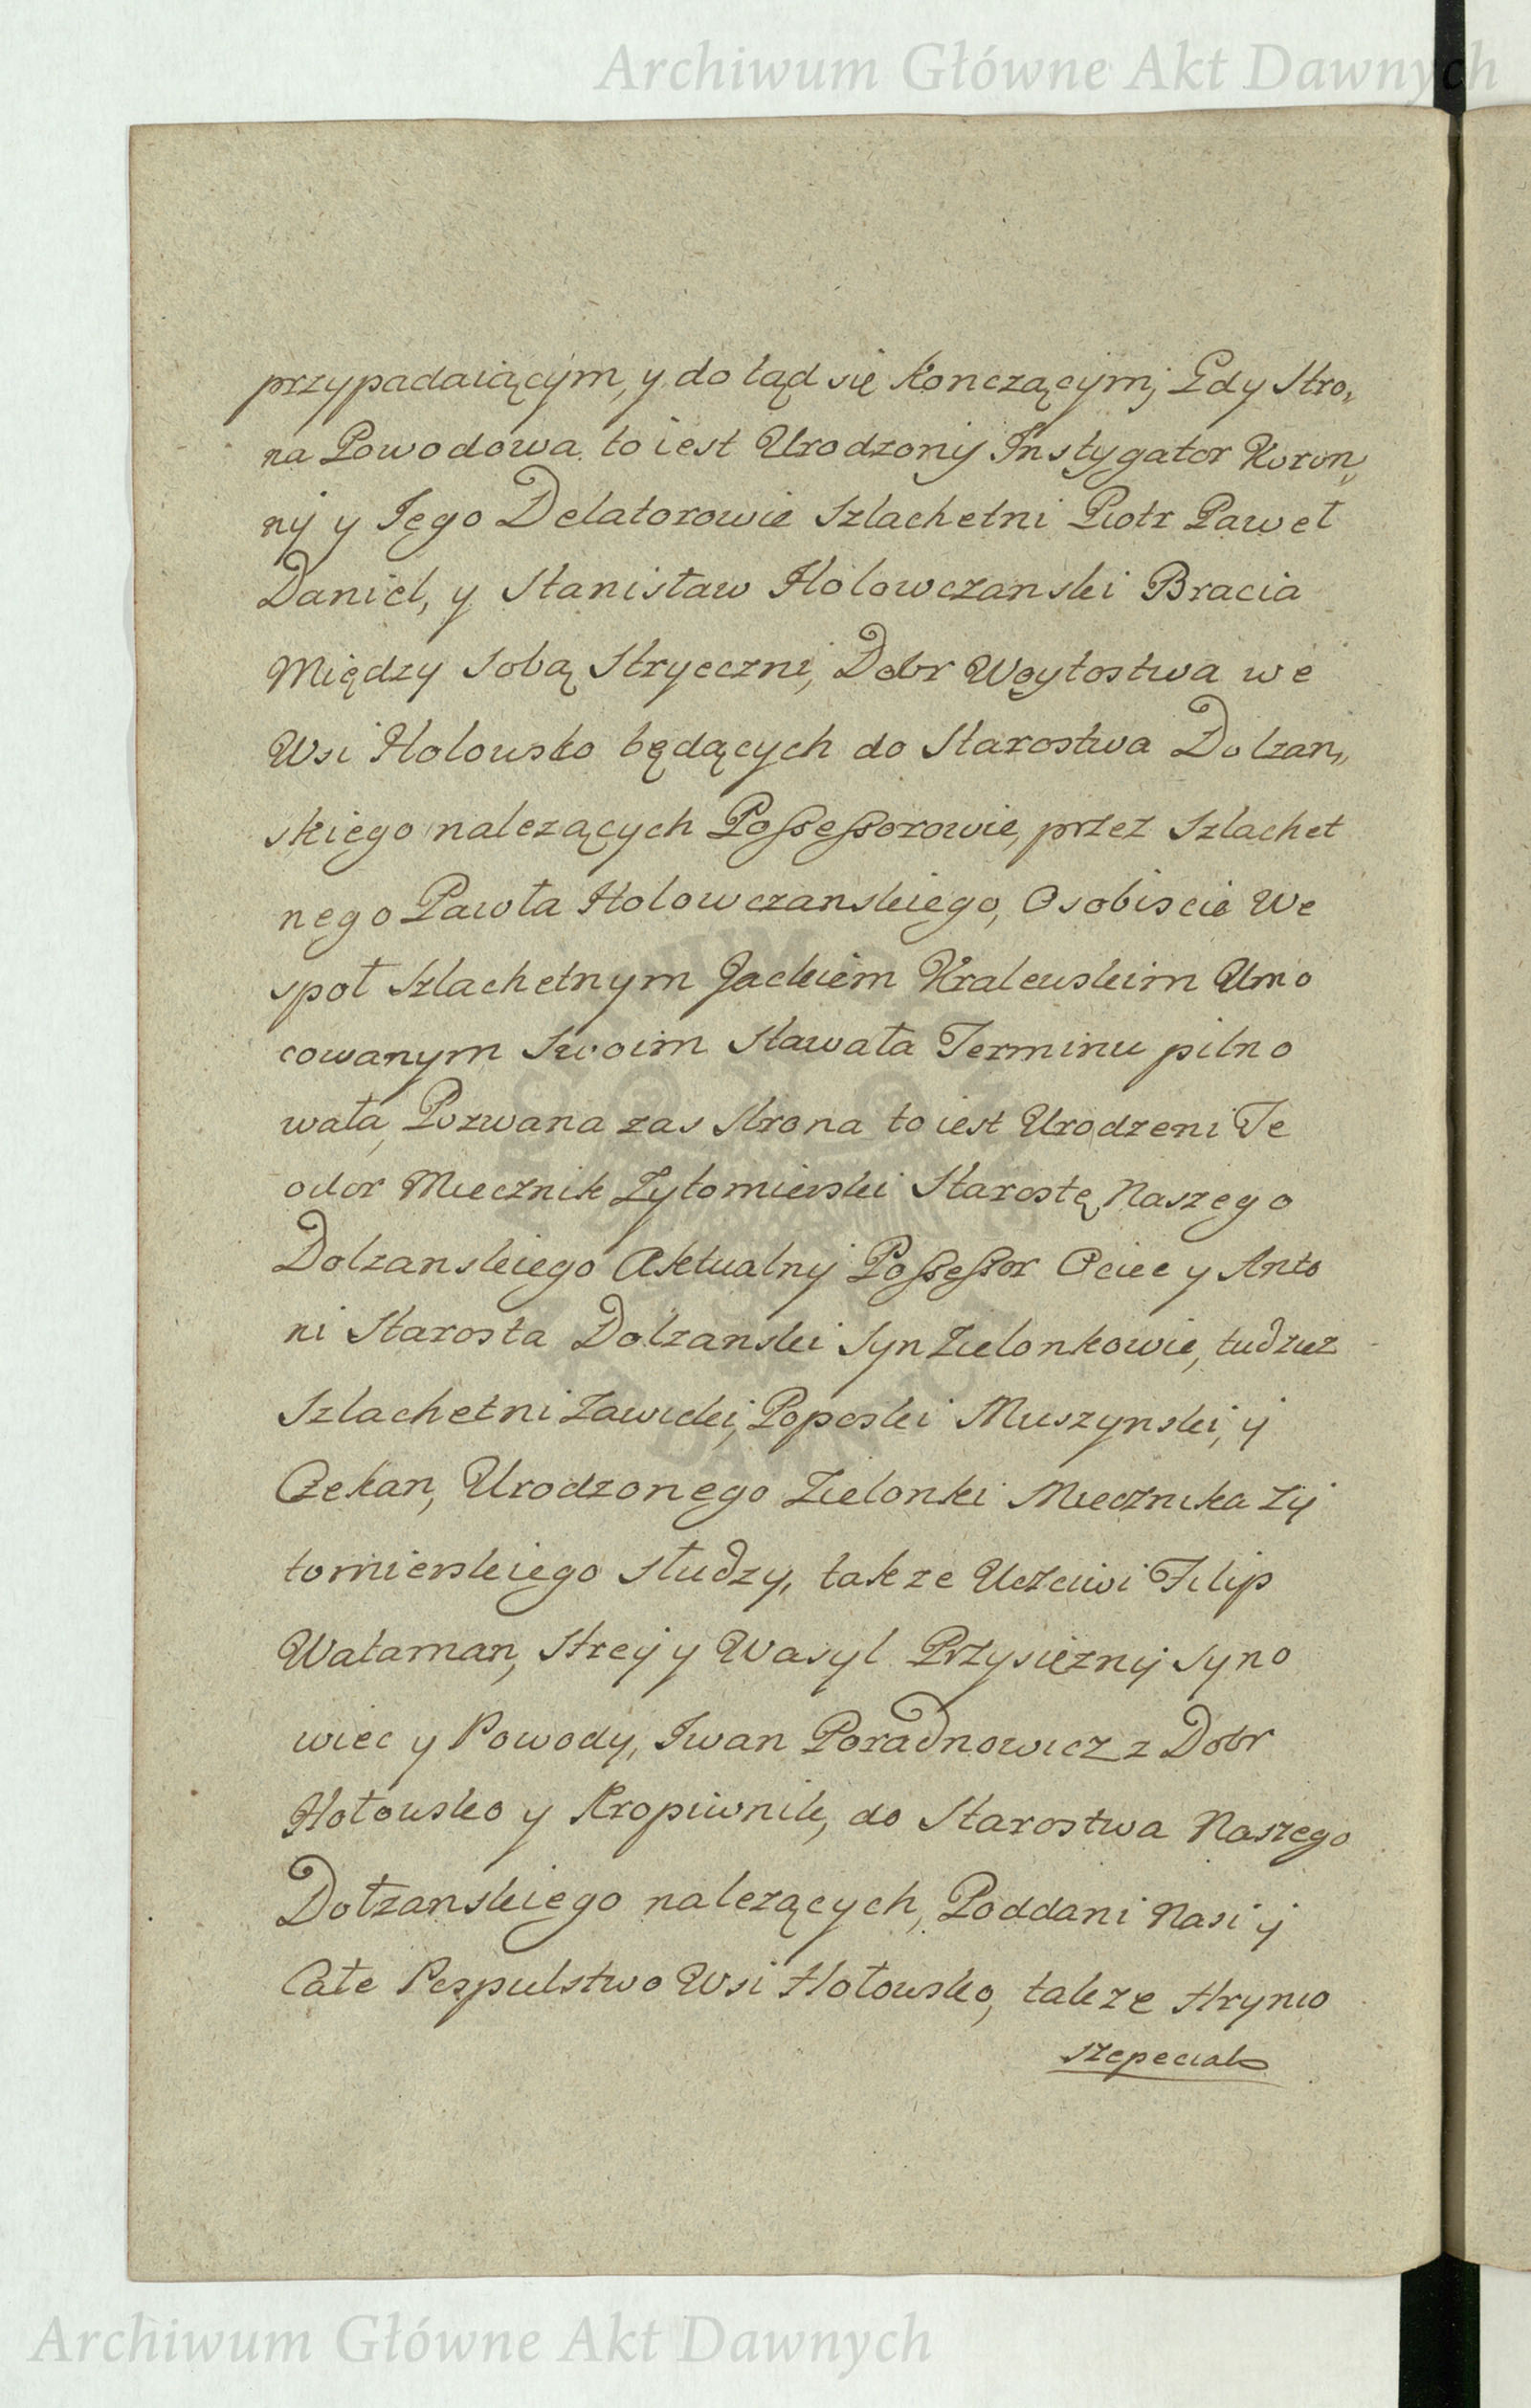 Archiwum Główne Akt Dawnych
przypadaiącym, y do tąd się konczącym; Gdy Stro„
na Powodowa to iest Urodzony Instygator Koron„
ny y Jego Delatorowie Szlachetni Piotr Paweł
Daniel, y Stanisław Holowczanski Bracia
Między Sobą Stryeczni, Dobr Woytostwa we
Wsi Holowsko będących do Starostwa Dolzan„
skiego nalezących Possessorowie, przez Szlachet
nego Pawła Holowczanskiego, Osobiscie We
społ Szlachetnym Jackiem Kralewskim Umo
cowanym Swoim Stawała Terminu pilno
wała, Pozwana zas Strona to iest Urodzeni Te
odor Miecznik Zytomierski Starostę Naszego
Dolzanskiego Aktualny Possessor Ociec y Anto
ni Starosta Dolzanski Syn Zielonkowie, tudziez
Szlachetni Zawicki, Poposki Muszynski, y
Czekan, Urodzonego Zielonki Miecznika Zy
tomierskiego słudzy, takze Uczciwi Filip
Wataman, Stryi y Wasyl Przysiezny Syno
wiec y Powody, Iwan Poradnowicz z Dobr
Hołowsko y Kropiwnik, do Starostwa Naszego
Dołzanskiego nalezących, Poddani Nasi y
Całe Pospulstwo Wsi Hołowsko, takze Hrynio
Szepeciak
Archiwum Główne Akt Dawnych